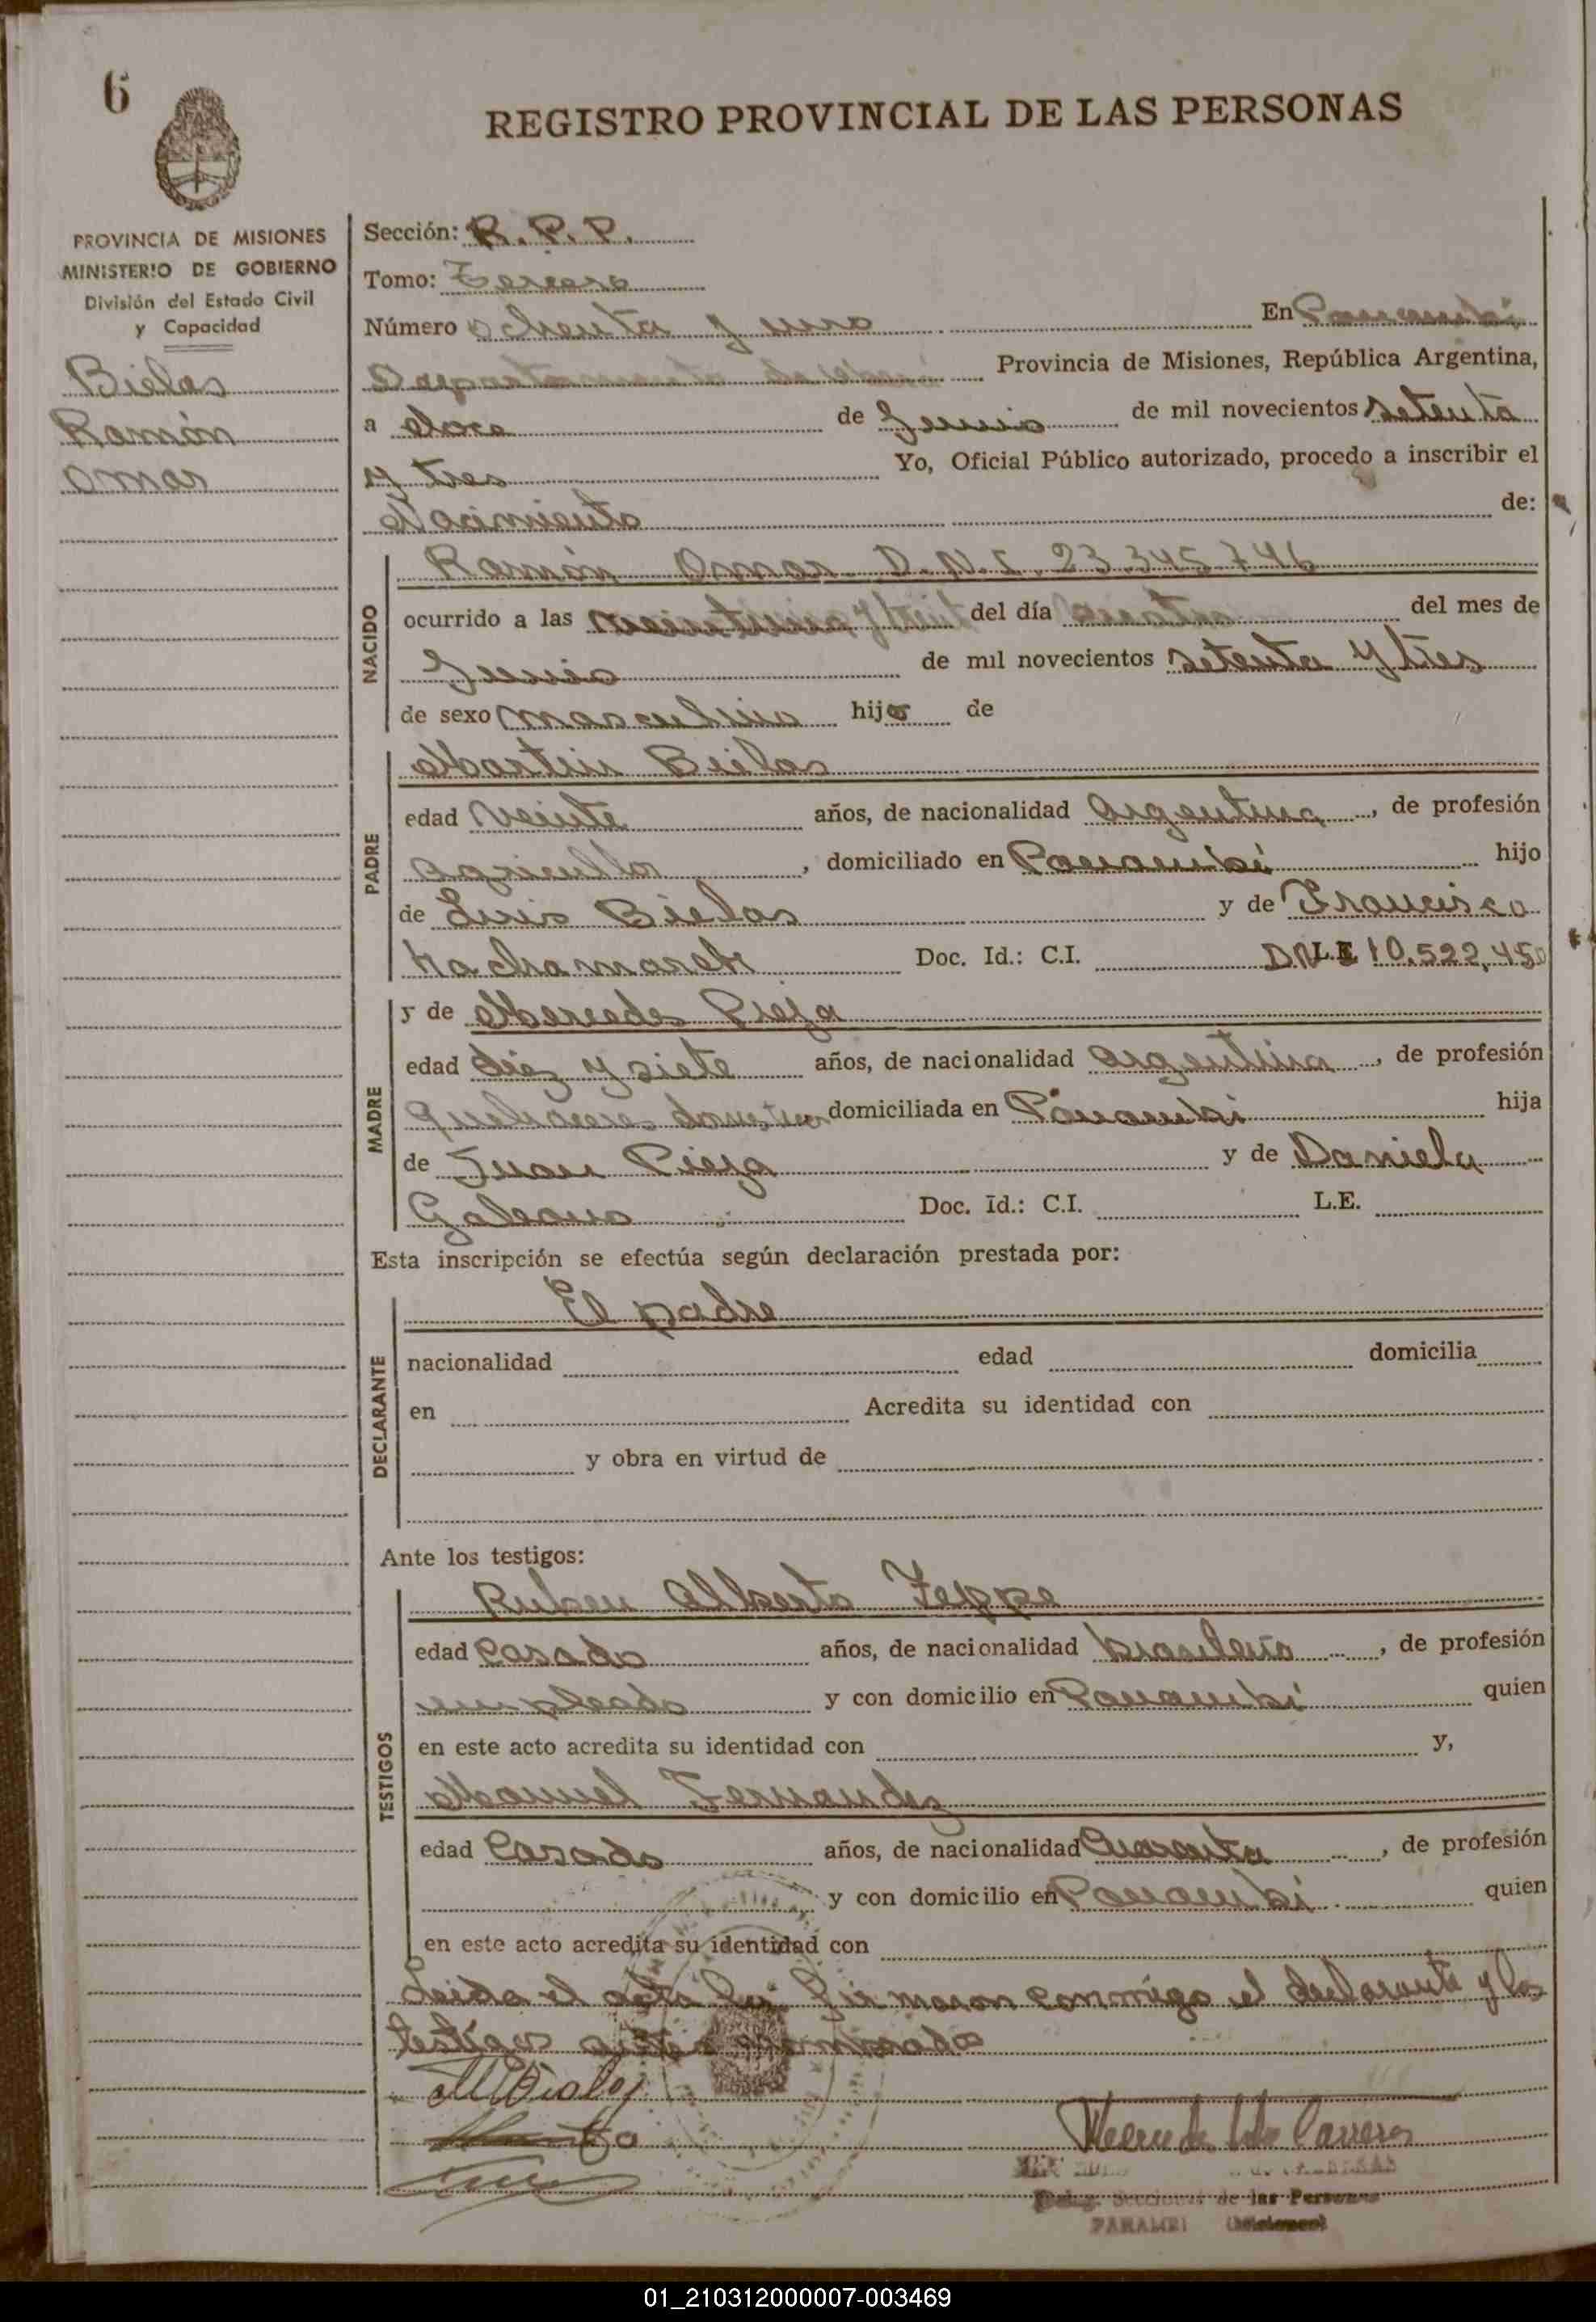 6
REGISTRO PROVINCIAL DE LAS PERSONAS
PROVINCIA DE MISIONES
MINISTERIO DE GOBIERNO
División del Estado Civil
y Capacidad
Bielas
Ramón
Omar
Sección: R. P. P.
Tomo: Tercero
Número ochenta y uno En Panambí
Departamento Provincia de Misiones, República Argentina,
a doce de Junio de mil novecientos setenta
y tres Yo, Oficial Público autorizado, procedo a inscribir el
Nacimiento de:
NACIDO
Ramón Omar D.N.I. 23.345.746
ocurrido a las del día del mes de
Junio de mil novecientos setenta y tres
de sexo masculino hijo de
PADRE
Martin Bielas
edad veinte años, de nacionalidad argentina, de profesión
agricultor, domiciliado en Panambí hijo
de Luis Bielas y de Francisca
Doc. Id.: C.I. DNI 10.522.45
MADRE
y de Mercedes Pieja
edad diez y siete años, de nacionalidad argentina, de profesión
quehaceres domiciliada en Panambi hija
de Juan Pieja y de Daniela
Galeano Doc. Id.: C.I. L.E.
Esta inscripción se efectúa según declaración prestada por:
DECLARANTE
El padre
nacionalidad edad domicilia
en Acredita su identidad con
y obra en virtud de
Ante los testigos:
TESTIGOS
Ruben Alberto Feppe
edad casado años, de nacionalidad brasileña, de profesión
empleado y con domicilio en Panambí quien
en este acto acredita su identidad con y,
Manuel Fernandez
edad Casado años, de nacionalidad Cuarenta, de profesión
y con domicilio en Panambí quien
en este acto acredita su identidad con
Leida el acta la firmaron conmigo el declarante y los
testigos antes nombrados
Deleg. Seccional de las Personas
PANAMBI (Misiones)
01_210312000007-003469